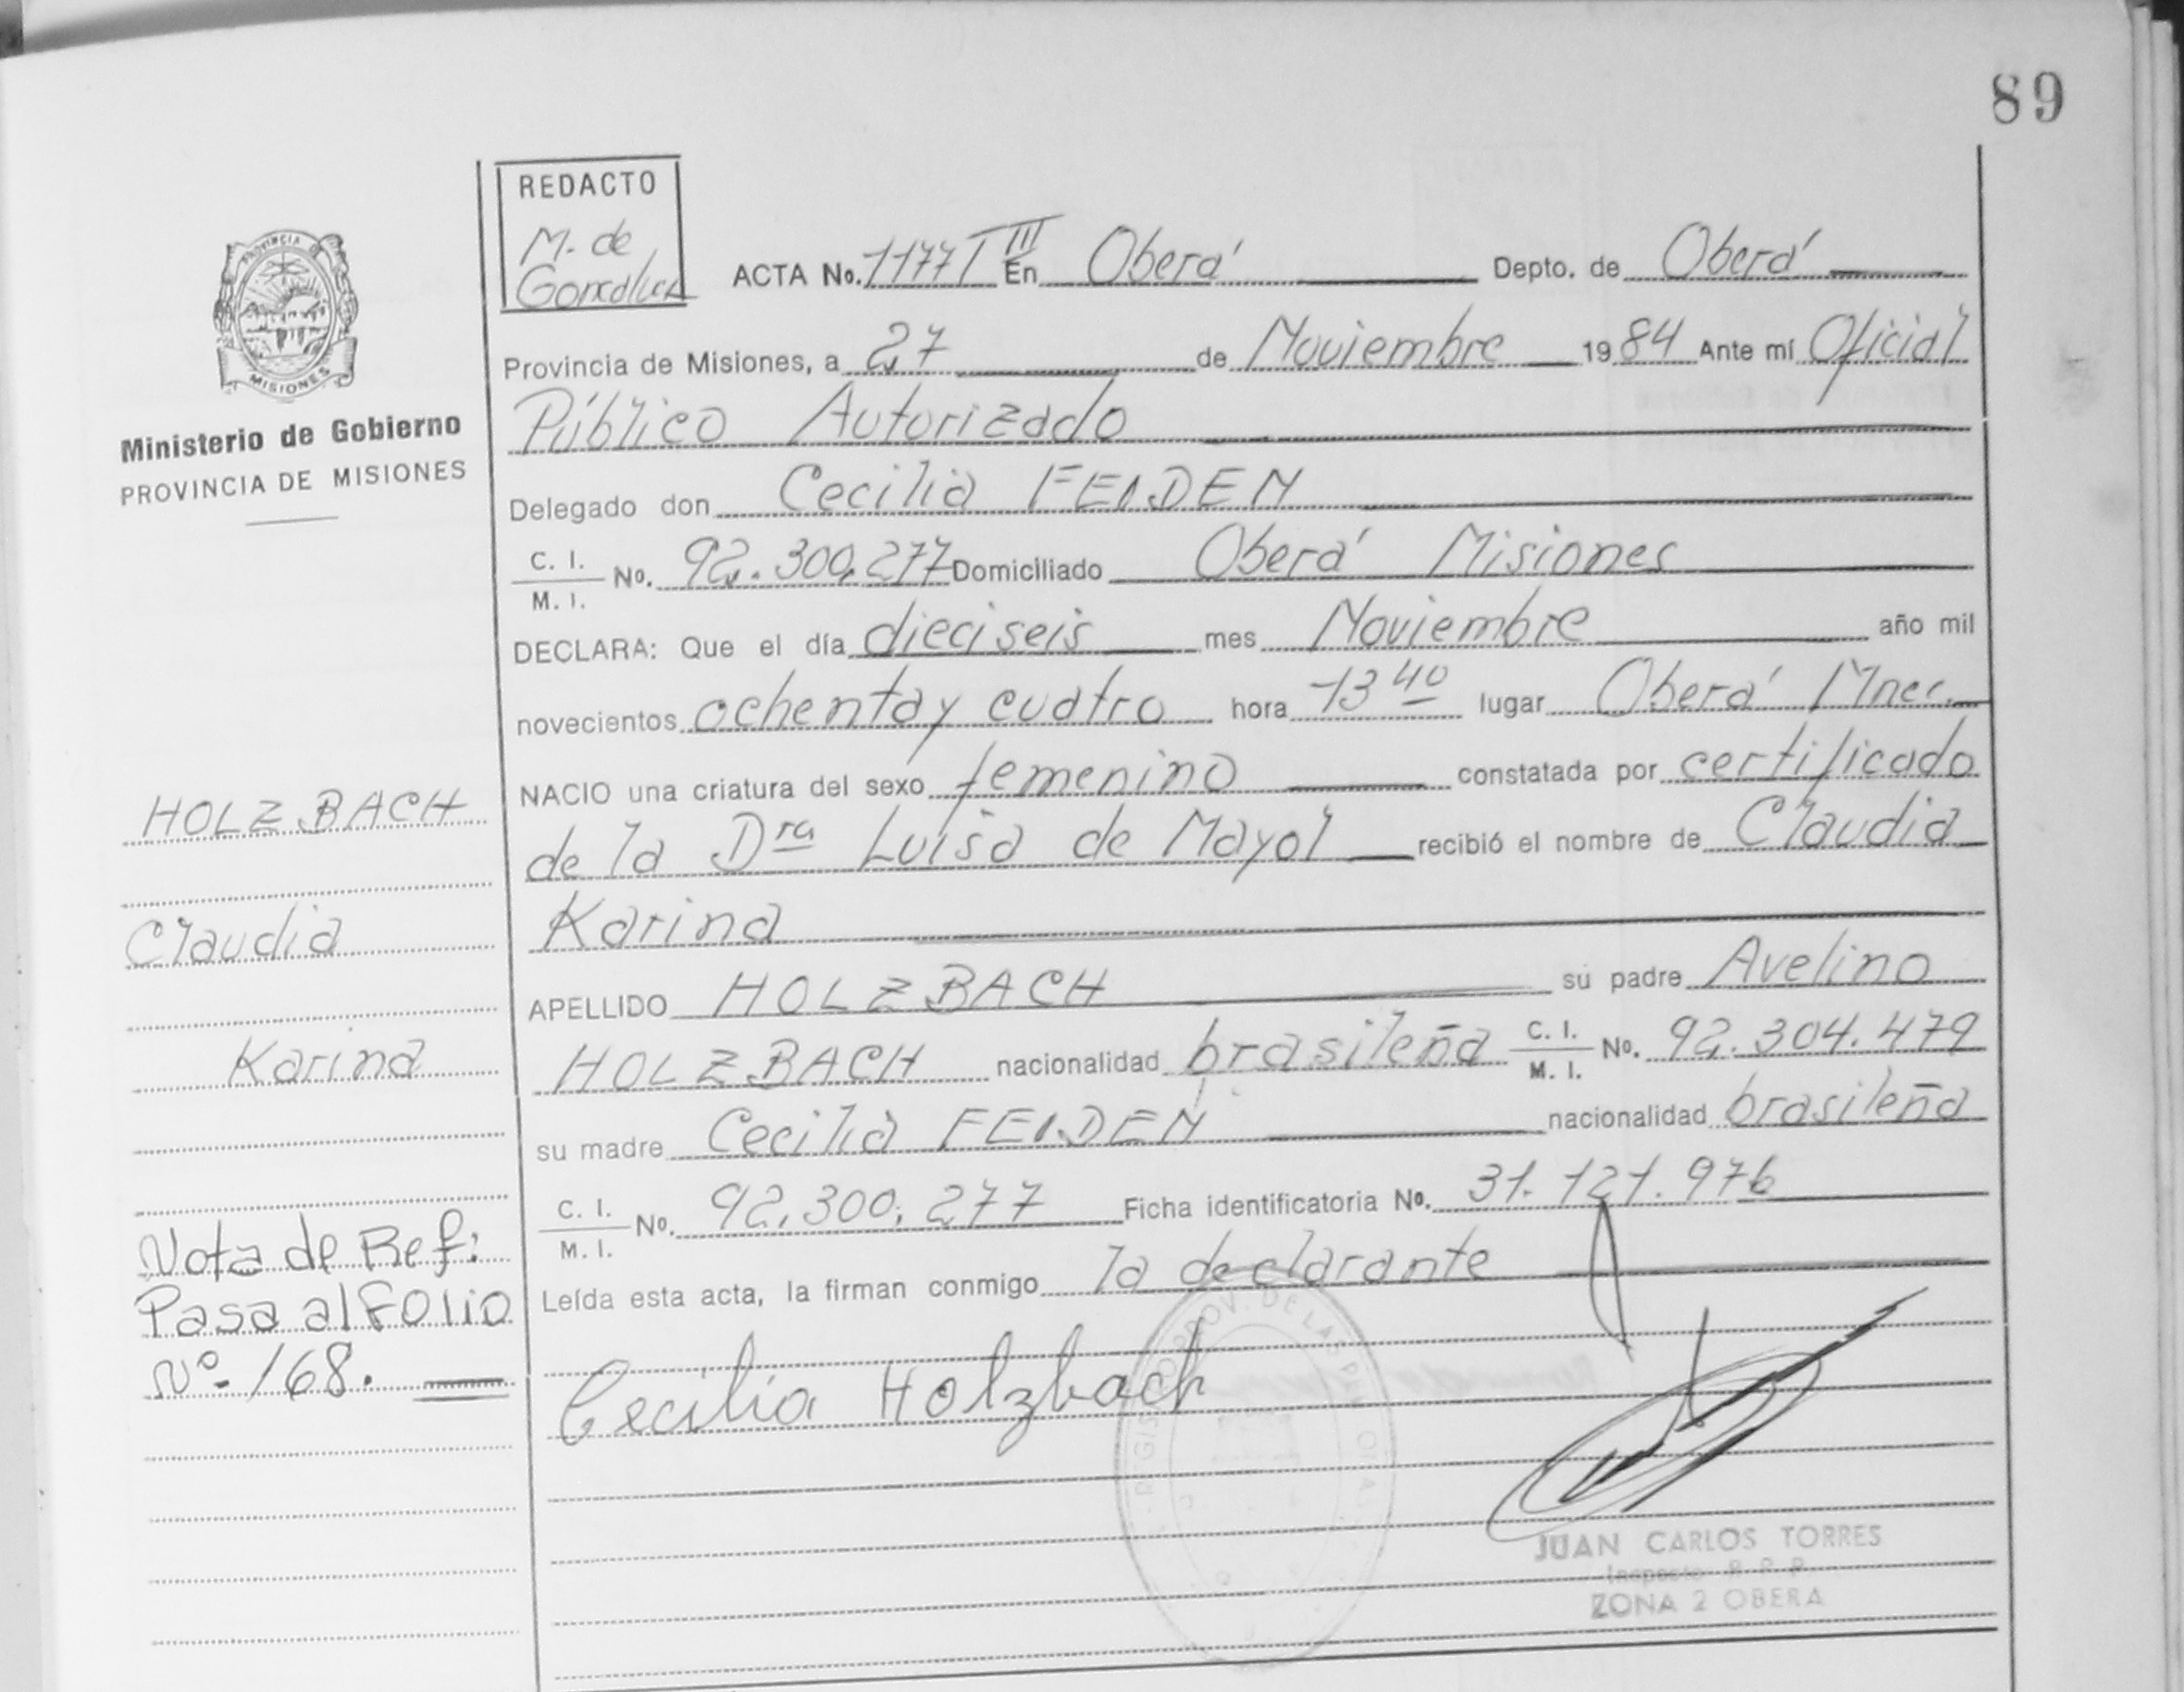 89
REDACTO
M. de
ACTA No. 1177 T III En Oberá Depto. de Oberá
PROVINCIA DE
MISIONES
Provincia de Misiones, a 27 de Noviembre 1984 Ante mí Oficial
Público Autorizado
Ministerio de Gobierno
PROVINCIA DE MISIONES
Delegado don Cecilia FEIDEN
C. I.
M. I. No. 92.300.277 Domiciliado Oberá Misiones
DECLARA: Que el día dieciseis mes Noviembre año mil
novecientos ochenta y cuatro hora 13 40 lugar Oberá Mnes.
NACIO una criatura del sexo femenino constatada por certificado
de la Dra Luisa de Mayol recibió el nombre de Claudia
Karina
APELLIDO HOLZBACH su padre Avelino
HOLZBACH nacionalidad brasileña C. I.
M. I. No. 92.304.479
su madre Cecilia FEIDEN nacionalidad brasileña
C. I.
M. I. No. 92.300.277 Ficha identificatoria No. 31.121.976
Leída esta acta, la firman conmigo la declarante
Cecilia Holzbach
HOLZBACH
Claudia
Karina
Nota de Ref:
Pasa al Folio
Nº 168.
JUAN CARLOS TORRES
ZONA 2 OBERA